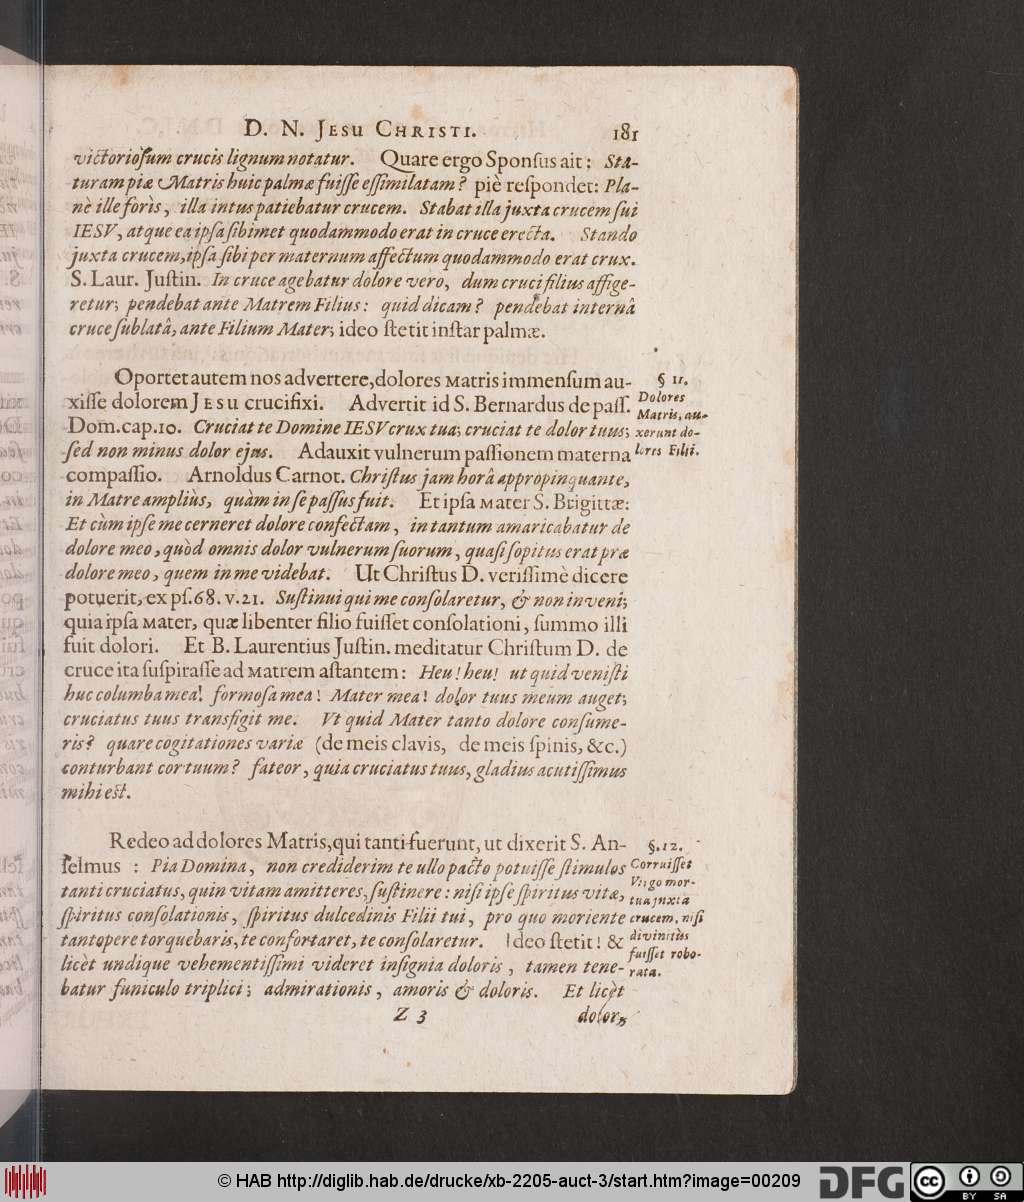 D. N. JESU CHRISTI. 181
victorioſum crucis lignum notatur. Quare ergo Sponſus ait: Sta-
turam piæ Matris huic palmæ fuiſſe eſſimilatam? piè reſpondet: Pla-
nè ille foris, illa intus patiebatur crucem. Stabat illa juxta crucem ſui
IESV, atque ea ipſa ſibimet quodammodo erat in cruce erecta. Stando
juxta crucem, ipſa ſibi per maternum affectum quodammodo erat crux.
S. Laur. Juſtin. In cruce agebatur dolore vero, dum cruci filius affige-
retur; pendebat ante Matrem Filius: quid dicam? pendebat internâ
cruce ſublatâ, ante Filium Mater; ideo ſtetit inſtar palmæ.
Oportet autem nos advertere, dolores Matris immenſum au-
xiſſe dolorem JESU crucifixi. Advertit id S. Bernardus de paſſ.
Dom. cap. 10. Cruciat te Domine IESV crux tua; cruciat te dolor tuus;
ſed non minus dolor ejus. Adauxit vulnerum paſſionem materna
compaſſio. Arnoldus Carnot. Chriſtus jam horâ appropinquante,
in Matre ampliùs, quàm in ſe paſſus fuit. Et ipſa Mater S. Brigittæ:
Et cùm ipſe me cerneret dolore confectam, in tantum amaricabatur de
dolore meo, quòd omnis dolor vulnerum ſuorum, quaſi ſopitus erat præ
dolore meo, quem in me videbat. Ut Chriſtus D. veriſſimè dicere
potuerit, ex pſ. 68. v. 21. Suſtinui qui me conſolaretur, & non inveni;
quia ipſa Mater, quæ libenter filio fuiſſet conſolationi, ſummo illi
fuit dolori. Et B. Laurentius Juſtin. meditatur Chriſtum D. de
cruce ita ſuſpiraſſe ad Matrem aſtantem: Heu! heu! ut quid veniſti
huc columba mea! formoſa mea! Mater mea! dolor tuus meum auget;
cruciatus tuus transfigit me. Vt quid Mater tanto dolore conſume-
ris? quare cogitationes variæ (de meis clavis, de meis ſpinis, &c.)
conturbant cor tuum? fateor, quia cruciatus tuus, gladius acutiſſimus
mihi eſt.
§ 11.
Dolores
Matris, au-
xerunt do-
lores Filii.
Redeo ad dolores Matris, qui tanti fuerunt, ut dixerit S. An-
ſelmus : Pia Domina, non crediderim te ullo pacto potuiſſe ſtimulos
tanti cruciatus, quin vitam amitteres, ſuſtinere: niſi ipſe ſpiritus vitæ,
ſpiritus conſolationis, ſpiritus dulcedinis Filii tui, pro quo moriente
tantopere torquebaris, te confortaret, te conſolaretur. Ideo ſtetit! &
licèt undique vehementiſſimi videret inſignia doloris, tamen tene-
batur funiculo triplici; admirationis, amoris & doloris. Et licèt
§. 12.
Corruiſſet
Virgo mor-
tua juxta
crucem, niſi
divinitùs
fuiſſet robo-
rata.
Z 3 dolor,
© HAB http://diglib.hab.de/drucke/xb-2205-auct-3/start.htm?image=00209
DFG
cc BY SA